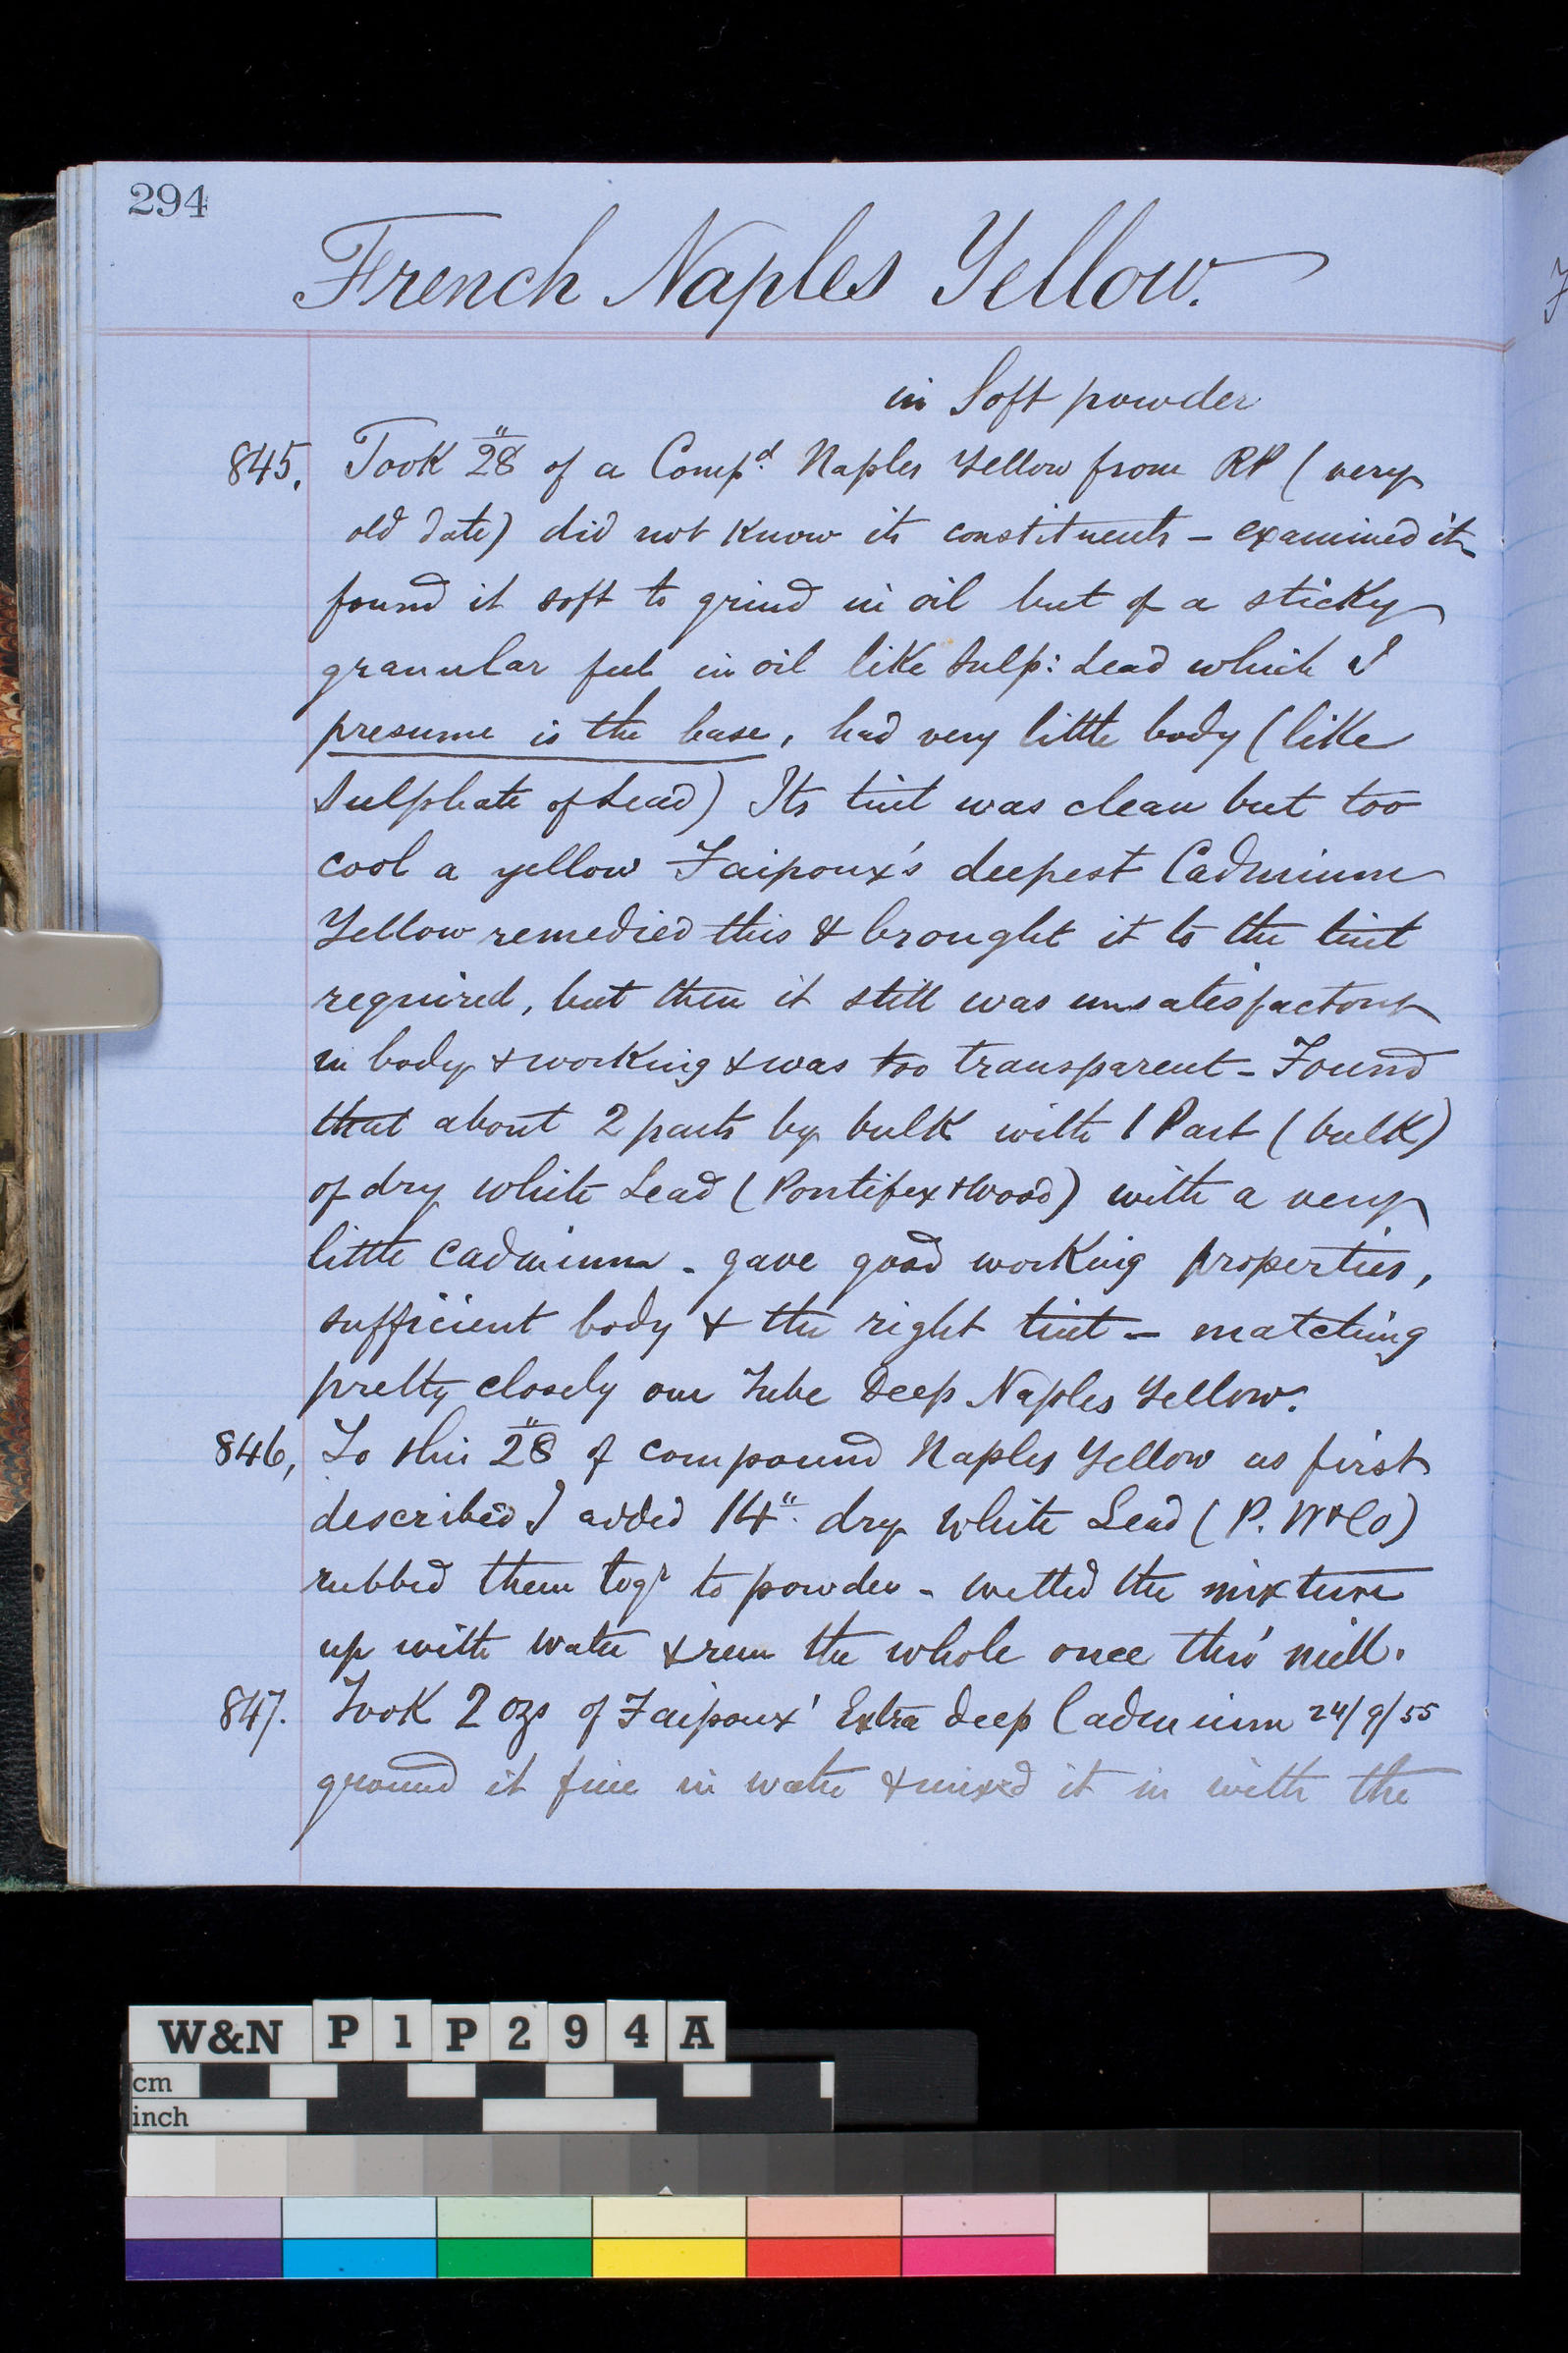 294
French Naples Yellow.
in Soft powder
845. Took 28" of a Compd. Naples Yellow from RP (very
old date) did not know its constituents – examined it
found it soft to grind in oil but of a sticky
granular feel in oil like Sulp: Lead which I
presume is the base, had very little body (like
Sulphate of Lead) Its tint was clean but too
cool a yellow Faipoux's deepest Cadmium
Yellow remedied this & brought it to the tint
required, but then it still was unsatisfactory
in body & working & was too transparent – Found
that about 2 parts by bulk with 1 Part (bulk)
of dry white Lead (Pontifex & Wood) with a very
little cadmium – gave good working properties,
sufficient body & the right tint – matching
pretty closely our Tube Deep Naples Yellow.
846, To this 28" of compound Naples Yellow as first
described I added 14" dry White Lead (P. W & Co)
rubbed them togr to powder – wetted the mixture
up with water & run the whole once thro' mill.
847. Took 2 ozs of Faipoux' Extra deep Cadmium 24/9/55
ground it fine in water & mixed it in with the
W&N P1P294A
cm
inch